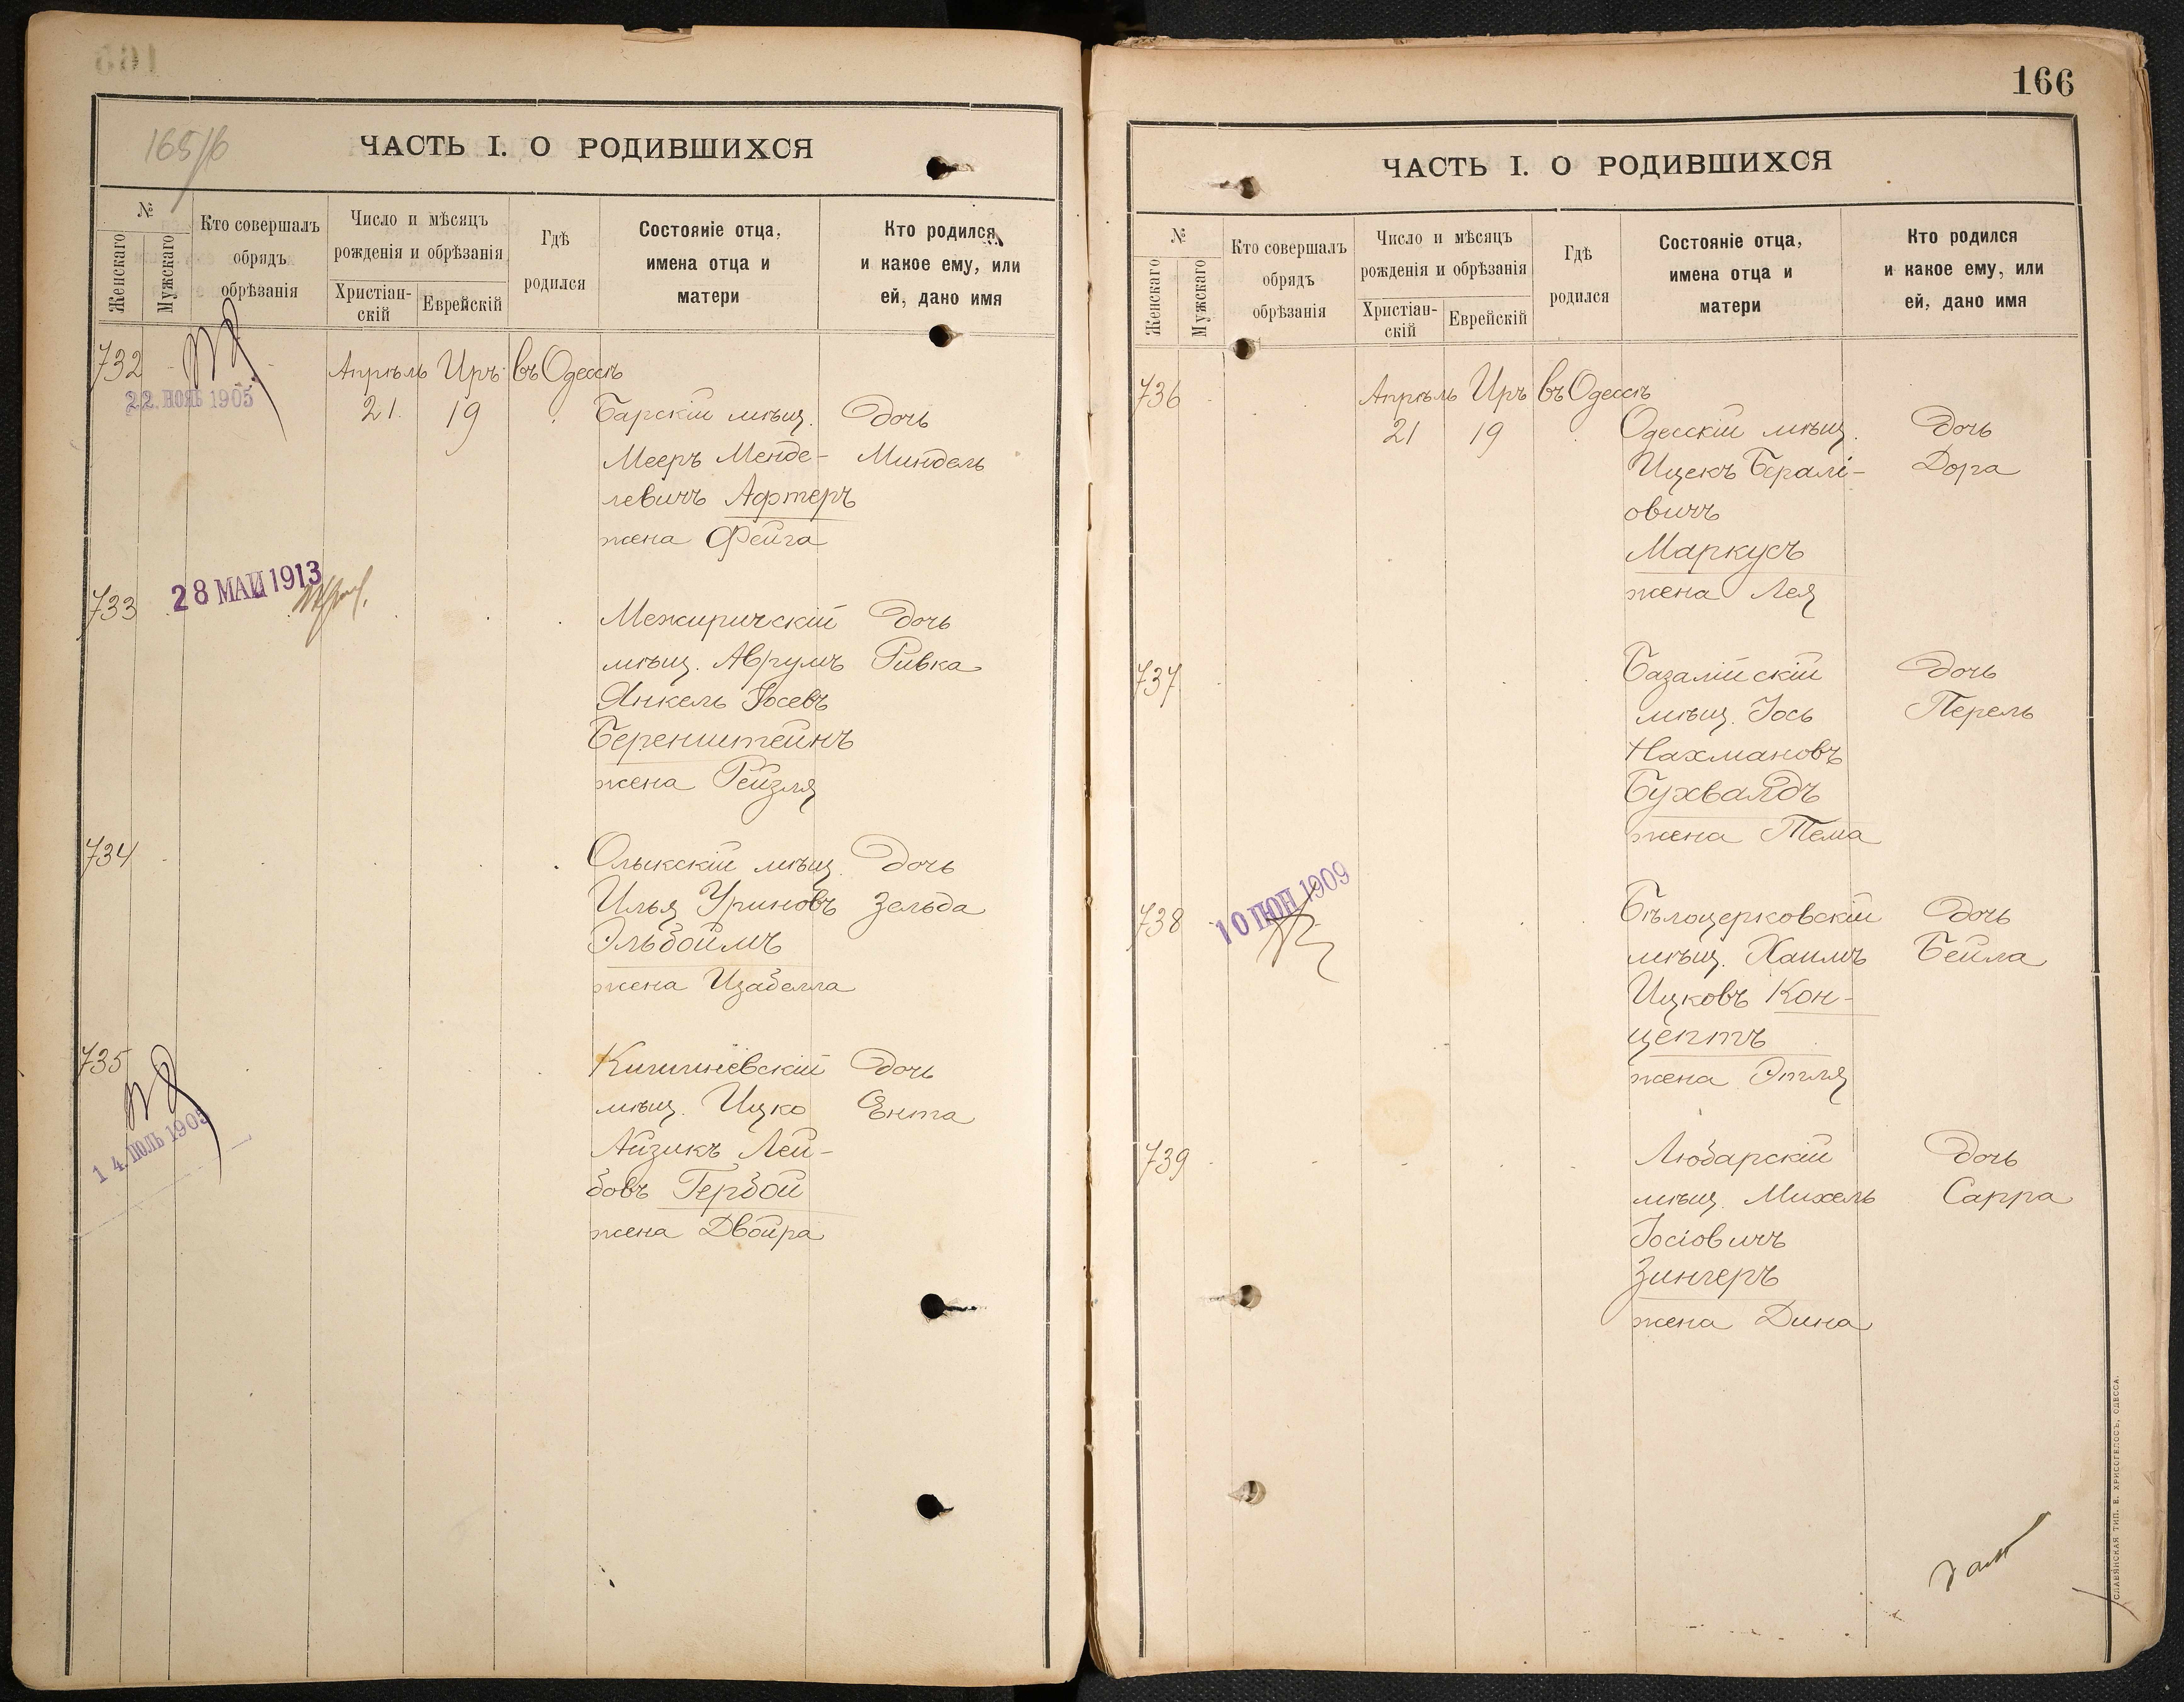 165/б
ЧАСТЬ I. О РОДИВШИХСЯ
№
Женскаго
Мужскаго
Кто совершалъ
обрядъ
обрѣзанія
Число и мѣсяцъ
рожденія и обрѣзанія
Христіан-
скій
Еврейскій
Гдѣ
родился
Состояніе отца,
имена отца и
матери
Кто родился
и какое ему, или
ей, дано имя
732 Апрѣль Иръ въ Одессѣ
22. НОЯБ 1905
21. 19 Барскій мѣщ. Дочь
Мееръ Менде- Миндель
левичъ Афтеръ
жена Фейга
28 МАЙ 1913
733 Межиричскій Дочь
мѣщ. Аврумъ Ривка
Янкель Іосевъ
Беренштейнъ
жена Рейзля
734 Олыкскій мѣщ. Дочь
Илья Уриновъ Зельда
Эльбоймъ
жена Изабелла
735 Кишиневскій Дочь
мѣщ. Ицко Ента
14. ІЮЛЬ 1905
Айзикъ Лей-
бовъ Гербой
жена Двойра
166
ЧАСТЬ I. О РОДИВШИХСЯ
№
Женскаго
Мужскаго
Кто совершалъ
обрядъ
обрѣзанія
Число и мѣсяцъ
рожденія и обрѣзанія
Христіан-
скій
Еврейскій
Гдѣ
родился
Состояніе отца,
имена отца и
матери
Кто родился
и какое ему, или
ей, дано имя
736 Апрѣль Иръ въ Одессѣ
21 19 Одесскій мѣщ. Дочь
Ицекъ Бералі- Дора
овичъ
Маркусъ
жена Лея
737 Базалійскій Дочь
мѣщ. Іось Перель
Нахмановъ
Бухвалдъ
жена Тема
10 ІЮН 1909
738 Бѣлоцерковскій Дочь
мѣщ. Хаимъ Бейла
Ицковъ Кон-
цептъ
жена Этля
739 Любарскій Дочь
мѣщ. Михель Сарра
Іосіовичъ
Зингеръ
жена Дина
СЛАВЯНСКАЯ ТИП. Е. ХРИСОГЕЛОСЪ, ОДЕССА.